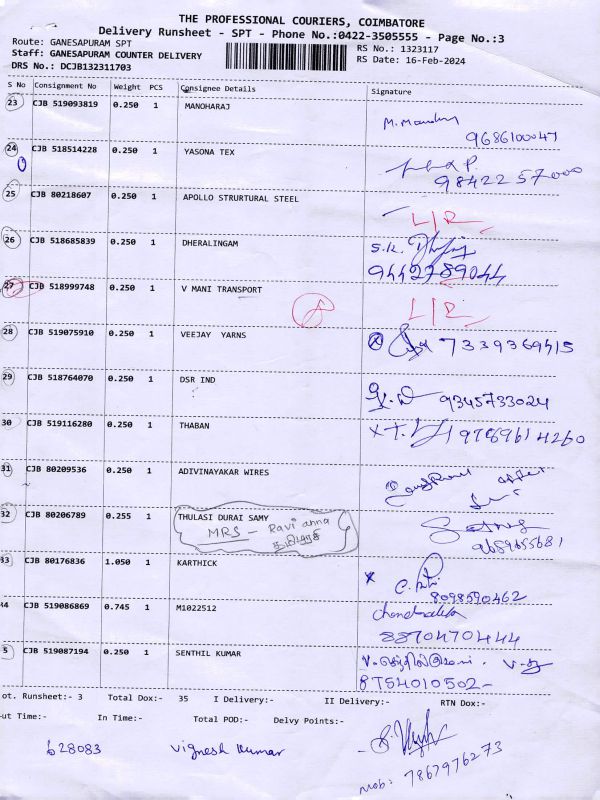 THE PROFESSIONAL COURIERS, COIMBATORE
Delivery Runsheet - SPT - Phone No.:0422-3505555 - Page No.:3
Route: GANESAPURAM SPT
RS No.: 1323117
Staff: GANESAPURAM COUNTER DELIVERY
RS Date: 16-Feb-2024
DRS No.: DCJB132311703
S No Consignment No Weight PCS Consignee Details Signature
23 CJB 519093819 0.250 1 MANOHARAJ
9686100047
24 CJB 518514228 0.250 1 YASONA TEX
98422 57000
25 CJB 80218607 0.250 1 APOLLO STRURTURAL STEEL
L/R
26 CJB 518685839 0.250 1 DHERALINGAM S.K.
9442789044
27 CJB 518999748 0.250 1 V MANI TRANSPORT L/R
28 CJB 519075910 0.250 1 VEEJAY YARNS 7339369415
29 CJB 518764070 0.250 1 DSR IND
9345733024
30 CJB 519116280 0.250 1 THABAN 9789614260
31 CJB 80209536 0.250 1 ADIVINAYAKAR WIRES
32 CJB 80206789 0.255 1 THULASI DURAI SAMY
MRS - Ravi anna
33 CJB 80176836 1.050 1 KARTHICK
8098590462
44 CJB 519086869 0.745 1 M1022512
8870470444
5 CJB 519087194 0.250 1 SENTHIL KUMAR
8754010502-
ot. Runsheet:- 3 Total Dox:- 35 I Delivery:- II Delivery:- RTN Dox:-
ut Time:- In Time:- Total POD:- Delvy Points:-
628083 Vignesh Kumar
Mob: 7867976273